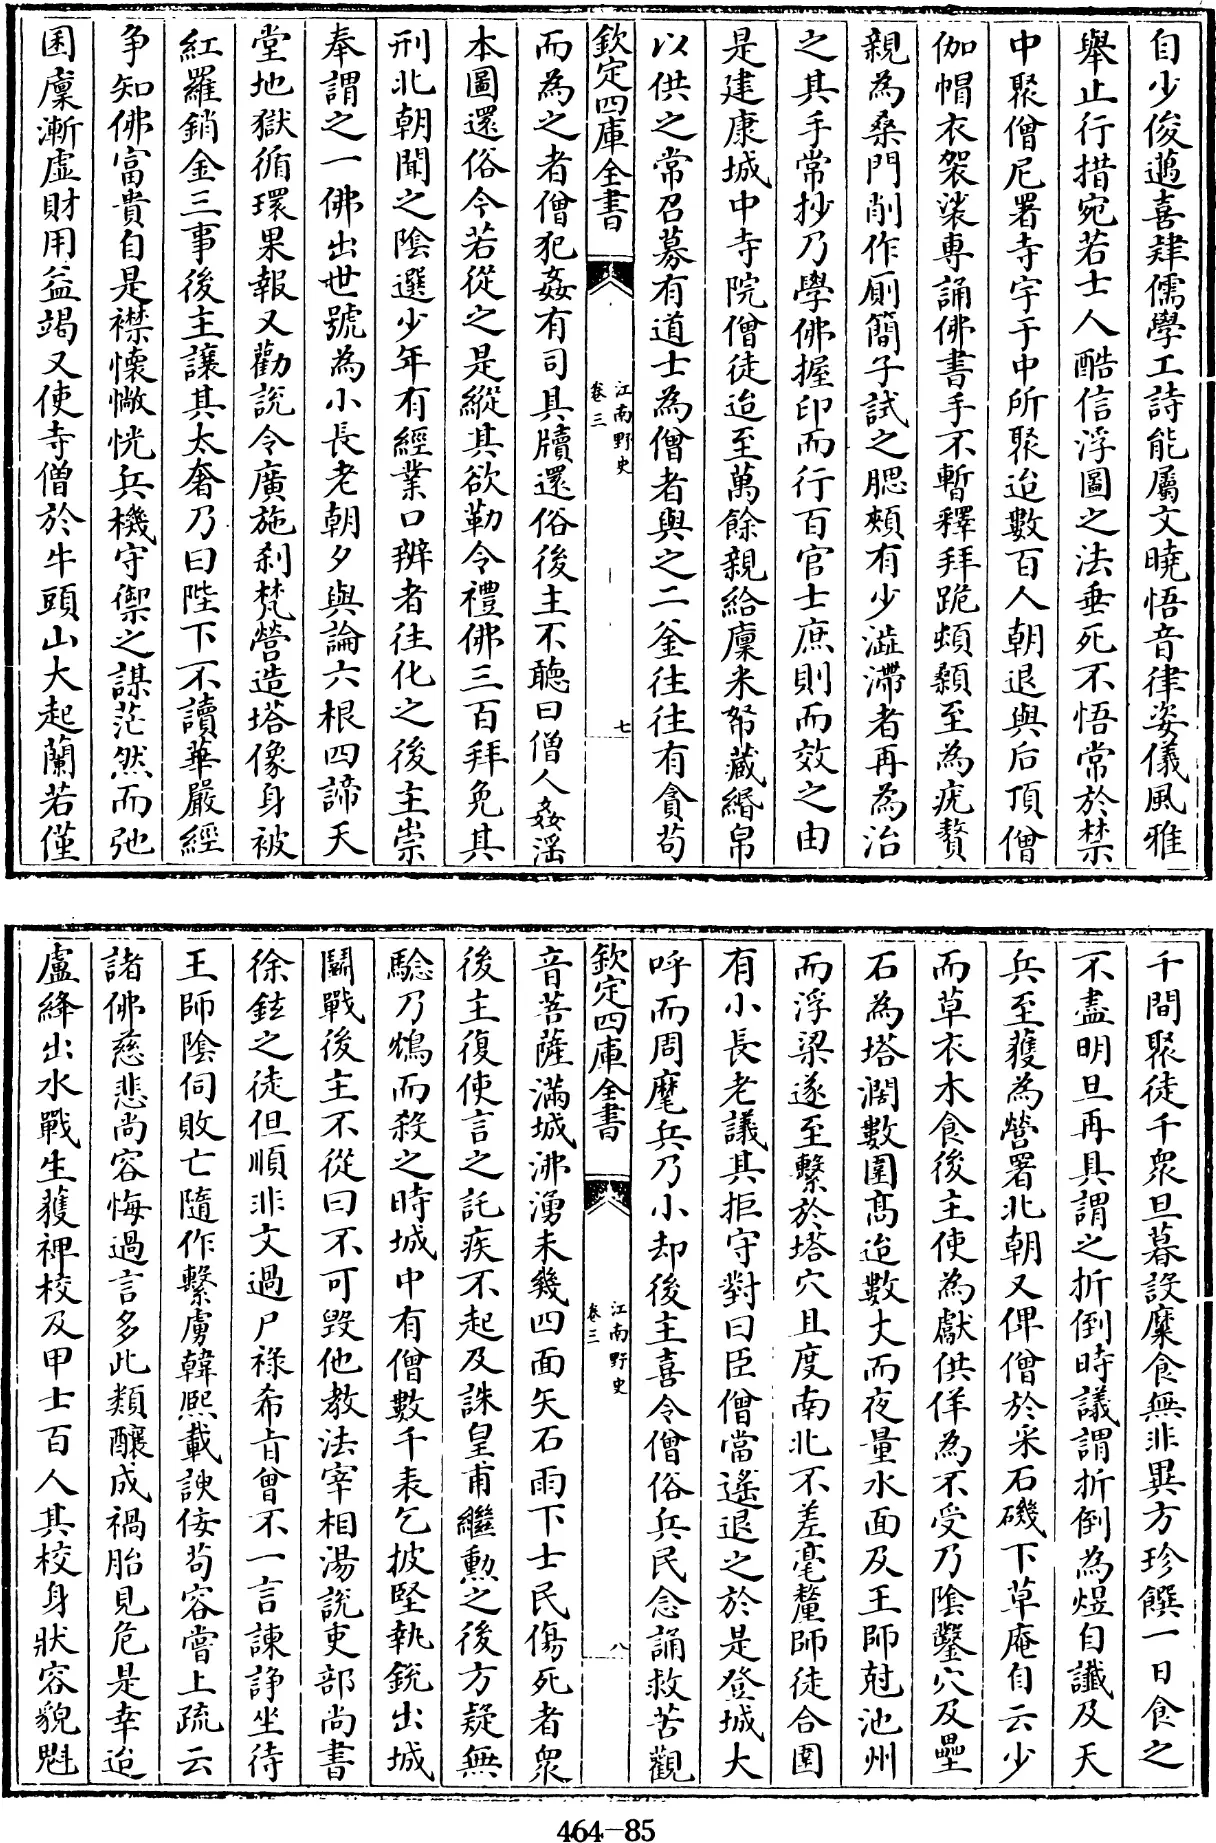 自少俊邁喜肄儒學工詩能屬文曉悟音律姿儀風雅
舉止行措宛若士人酷信浮圖之法垂死不悟常於禁
中聚僧尼署寺宇于中所聚迨數百人朝退與后頂僧
伽帽衣袈裟專誦佛書手不暫釋拜跪頰顙至為疣贅
親為桑門削作厠簡子試之腮頰有少澁滯者再為治
之其手常抄乃學佛握印而行百官士庶則而效之由
是建康城中寺院僧徒迨至萬餘親給廩米帑藏緡帛
以供之常召募有道士為僧者與之二釜往往有貪苟
欽定四庫全書
江南野史
卷三
七
而為之者僧犯姦有司具牘還俗後主不聽曰僧人姦滛
本圖還俗今若從之是縱其欲勒令禮佛三百拜免其
刑北朝聞之陰選少年有經業口辨者往化之後主崇
奉謂之一佛出世號為小長老朝夕與論六根四諦天
堂地獄循環果報又勸說令廣施刹梵營造塔像身被
紅羅銷金三事後主讓其太奢乃曰陛下不讀華嚴經
争知佛富貴自是襟懷懒恍兵機守禦之謀茫然而弛
囷廩漸虛財用益竭又使寺僧於牛頭山大起蘭若僅
千間聚徒千眾旦暮設糜食無非異方珍饌一日食之
不盡明旦再具謂之折倒時議謂折倒為煜自讖及天
兵至蒦為營署北朝又俾僧於采石磯下草庵自云少
而草衣木食後主使為獻供佯為不受乃陰鑿穴及壘
石為塔濶數圍髙迨數丈而夜量水面及王師尅池州
而浮梁遂至繫於塔穴且度南北不差毫釐師徒合圍
有小長老議其拒守對曰臣僧當遙退之於是登城大
呼而周麾兵乃小却後主喜令僧俗兵民念誦救苦觀
欽定四庫全書
江南野史
卷三
八
音菩薩滿城沸湧未幾四面矢石雨下士民傷死者衆
後主復使言之託疾不起及誅皇甫繼勲之後方疑無
驗乃鴆而殺之時城中有僧數千表乞披堅執銳出城
鬭戰後主不從曰不可毀他教法宰相湯說吏部尚書
徐鉉之徒但順非文過尸祿希旨曾不一言諫諍坐待
王師陰伺敗亡隨作繫虜韓熙載諛佞苟容嘗上疏云
諸佛慈悲尚容悔過言多此類釀成禍胎見危是幸迨
盧絳出水戰生蒦裨校及甲士百人其校身狀容貌魁
464-85